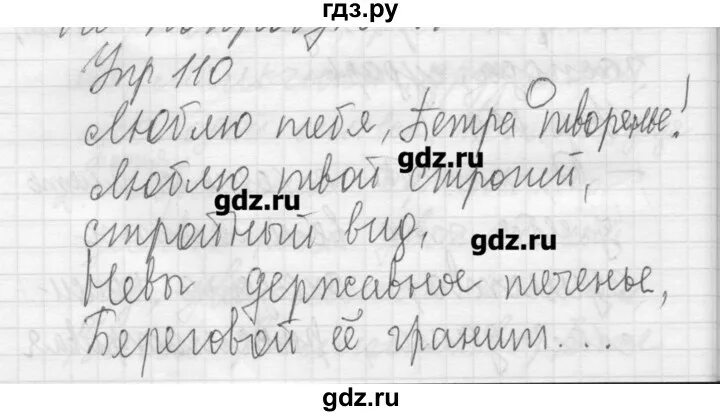 гдз.ру
Упр 110
Люблю тебя, Петра творенье!
gdz.ru
Люблю твой строгий,
gdz.ru
стройный вид,
gdz.ru
Невы державное теченье,
Береговой её гранит...
gdz.ru